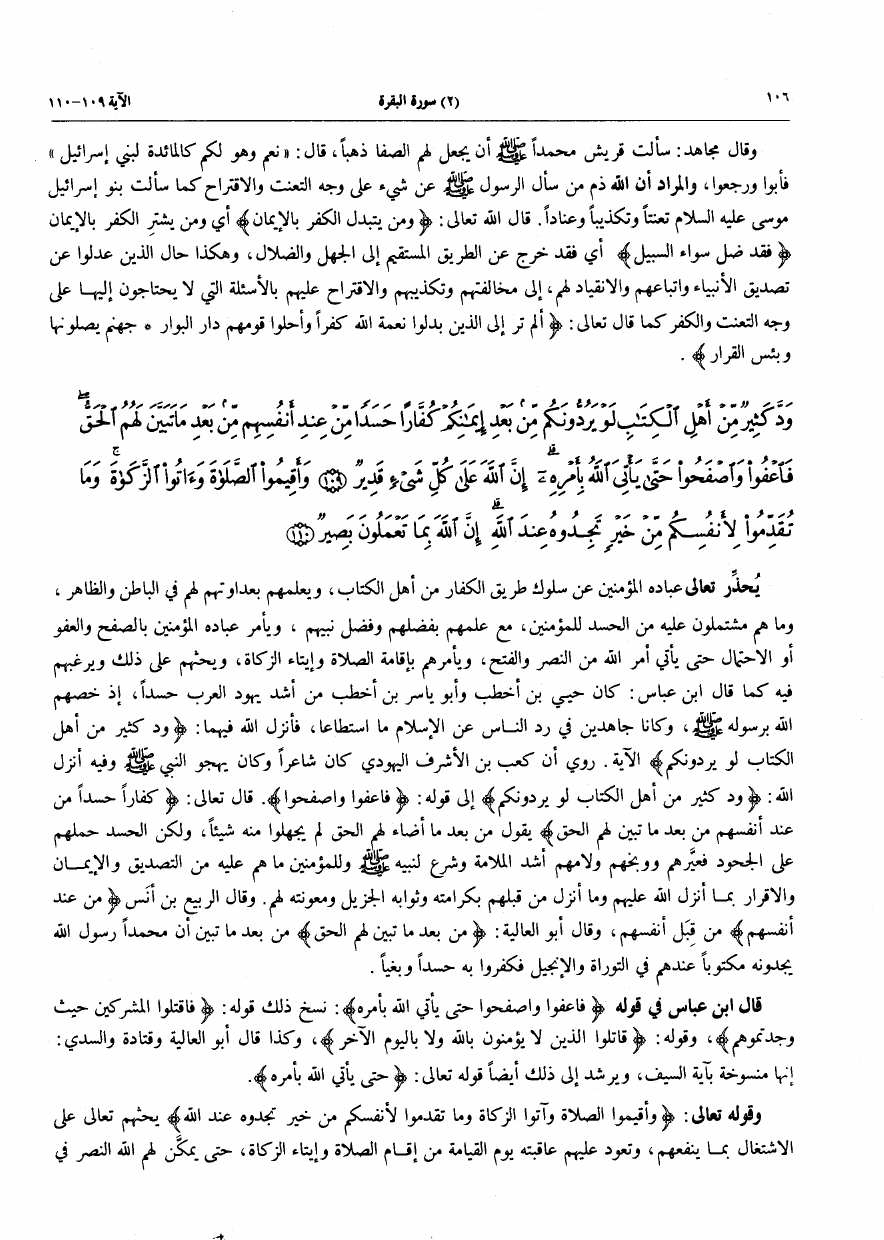 ١٠٦ (٢) سورة البقرة الآية ١٠٩-١١٠
وقال مجاهد: سألت قريش محمداً ﷺ أن يجعل لهم الصفا ذهباً، قال: «نعم وهو لكم كالمائدة لبني إسرائيل»
فأبوا ورجعوا، والمراد أن الله ذم من سأل الرسول ﷺ عن شيء على وجه التعنت والاقتراح كما سألت بنو إسرائيل
موسى عليه السلام تعنتاً وتكذيباً وعناداً. قال الله تعالى: ﴿ومن يتبدل الكفر بالإيمان﴾ أي ومن يشترِ الكفر بالإيمان
﴿فقد ضل سواء السبيل﴾ أي فقد خرج عن الطريق المستقيم إلى الجهل والضلال، وهكذا حال الذين عدلوا عن
تصديق الأنبياء واتباعهم والانقياد لهم، إلى مخالفتهم وتكذيبهم والاقتراح عليهم بالأسئلة التي لا يحتاجون إليها على
وجه التعنت والكفر كما قال تعالى: ﴿ألم تر إلى الذين بدلوا نعمة الله كفراً وأحلوا قومهم دار البوار * جهنم يصلونها
وبئس القرار﴾.
وَدَّ كَثِيرٌ مِّنْ أَهْلِ ٱلْكِتَٰبِ لَوْ يَرُدُّونَكُم مِّنۢ بَعْدِ إِيمَٰنِكُمْ كُفَّارًا حَسَدًا مِّنْ عِندِ أَنفُسِهِم مِّنۢ بَعْدِ مَا تَبَيَّنَ لَهُمُ ٱلْحَقُّۖ
فَٱعْفُوا۟ وَٱصْفَحُوا۟ حَتَّىٰ يَأْتِىَ ٱللَّهُ بِأَمْرِهِۦٓۗ إِنَّ ٱللَّهَ عَلَىٰ كُلِّ شَىْءٍ قَدِيرٌ ﴿١٠٩﴾ وَأَقِيمُوا۟ ٱلصَّلَوٰةَ وَءَاتُوا۟ ٱلزَّكَوٰةَۚ وَمَا
تُقَدِّمُوا۟ لِأَنفُسِكُم مِّنْ خَيْرٍ تَجِدُوهُ عِندَ ٱللَّهِۗ إِنَّ ٱللَّهَ بِمَا تَعْمَلُونَ بَصِيرٌ ﴿١١٠﴾
يُحذِّر تعالى عباده المؤمنين عن سلوك طريق الكفار من أهل الكتاب، ويعلمهم بعداوتهم لهم في الباطن والظاهر،
وما هم مشتملون عليه من الحسد للمؤمنين، مع علمهم بفضلهم وفضل نبيهم، ويأمر عباده المؤمنين بالصفح والعفو
أو الاحتمال حتى يأتي أمر الله من النصر والفتح، ويأمرهم بإقامة الصلاة وإيتاء الزكاة، ويحثهم على ذلك ويرغبهم
فيه كما قال ابن عباس: كان حيي بن أخطب وأبو ياسر بن أخطب من أشد يهود العرب حسداً، إذ خصهم
الله برسوله ﷺ، وكانا جاهدين في رد الناس عن الإسلام ما استطاعا، فأنزل الله فيهما: ﴿ود كثير من أهل
الكتاب لو يردونكم﴾ الآية. روي أن كعب بن الأشرف اليهودي كان شاعراً وكان يهجو النبي ﷺ وفيه أنزل
الله: ﴿ود كثير من أهل الكتاب لو يردونكم﴾ إلى قوله: ﴿فاعفوا واصفحوا﴾. قال تعالى: ﴿كفاراً حسداً من
عند أنفسهم من بعد ما تبين لهم الحق﴾ يقول من بعد ما أضاء لهم الحق لم يجهلوا منه شيئاً، ولكن الحسد حملهم
على الجحود فعيَّرهم ووبخهم ولامهم أشد الملامة وشرع لنبيه ﷺ وللمؤمنين ما هم عليه من التصديق والإيمان
والاقرار بما أنزل الله عليهم وما أنزل من قبلهم بكرامته وثوابه الجزيل ومعونته لهم. وقال الربيع بن أنَس ﴿من عند
أنفسهم﴾ من قِبَل أنفسهم، وقال أبو العالية: ﴿من بعد ما تبين لهم الحق﴾ من بعد ما تبين أن محمداً رسول الله
يجدونه مكتوباً عندهم في التوراة والإنجيل فكفروا به حسداً وبغياً.
قال ابن عباس في قوله ﴿فاعفوا واصفحوا حتى يأتي الله بأمره﴾: نسخ ذلك قوله: ﴿فاقتلوا المشركين حيث
وجدتموهم﴾، وقوله: ﴿قاتلوا الذين لا يؤمنون بالله ولا باليوم الآخر﴾، وكذا قال أبو العالية وقتادة والسدي:
إنها منسوخة بآية السيف، ويرشد إلى ذلك أيضاً قوله تعالى: ﴿حتى يأتي الله بأمره﴾.
وقوله تعالى: ﴿وأقيموا الصلاة وآتوا الزكاة وما تقدموا لأنفسكم من خير تجدوه عند الله﴾ يحثهم تعالى على
الاشتغال بما ينفعهم، وتعود عليهم عاقبته يوم القيامة من إقام الصلاة وإيتاء الزكاة، حتى يمكَّن لهم الله النصر في